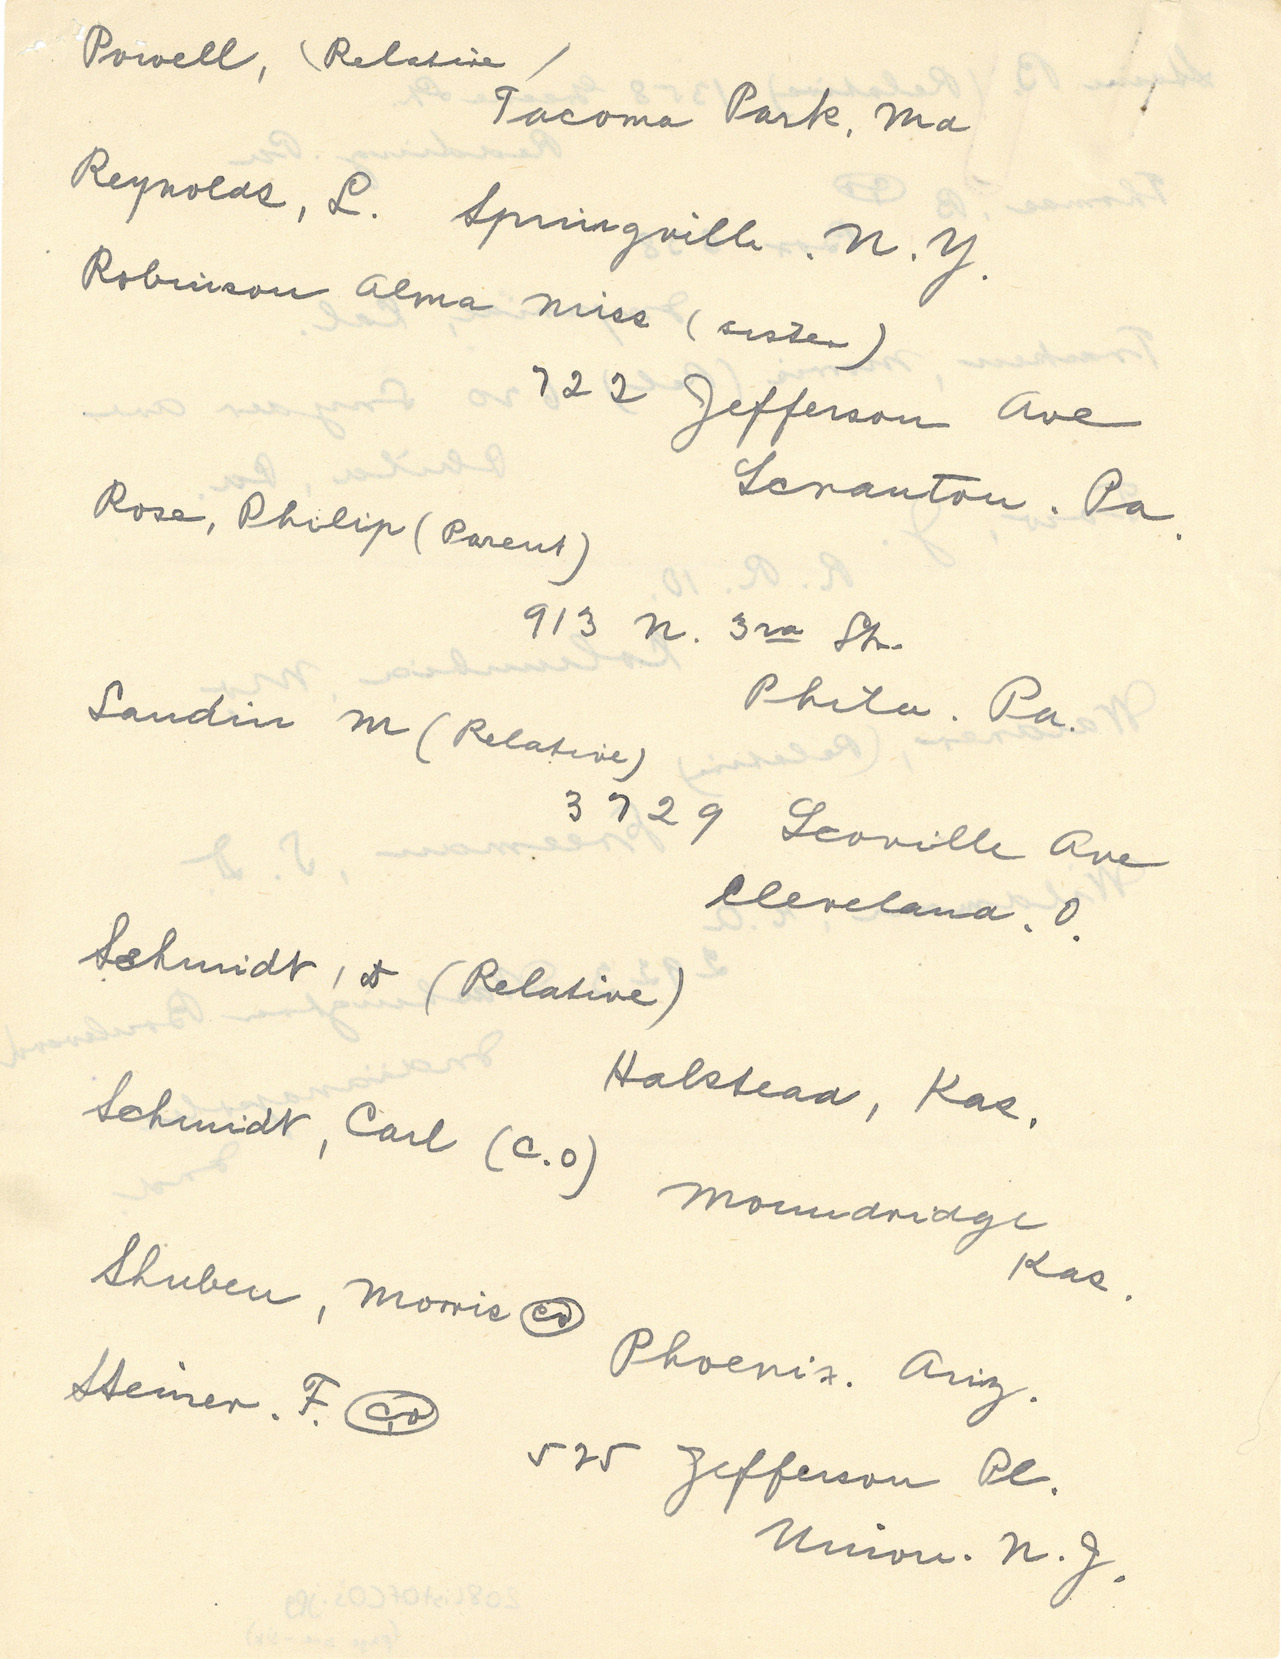 Powell, (Relative)
Tacoma Park, Md
Reynolds, L. Springville. N.Y.
Robinson Alma Miss (sister)
722 Jefferson Ave
Scranton. Pa.
Rose, Philip (Parent)
913 N. 3rd St.
Phila. Pa.
Sandin M (Relative)
3729 Scoville Ave
Cleveland. O.
Schmidt, (Relative)
Halstead, Kas.
Schmidt, Carl (C.O)
Moundridge
Kas.
Shuben, Morris CO
Phoenix. Ariz.
Steiner. F. CO
525 Jefferson Pl.
Union. N.J.